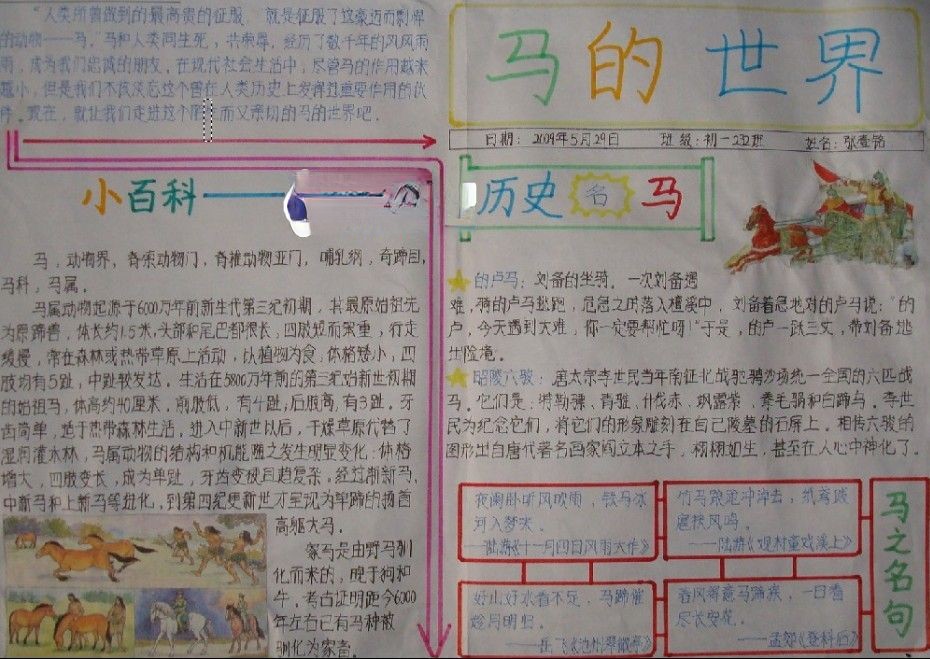 “人类所曾做到的最高贵的征服，就是征服了这豪迈而剽悍
的动物——马。”马和人类同生死，共荣辱，经历了数千年的风风雨
雨，成为我们忠诚的朋友。在现代社会生活中，尽管马的作用越来
越小，但是我们不该淡忘这个曾在人类历史上发挥过重要作用的伙
伴。现在，就让我们走进这个陌生而又亲切的马的世界吧。
马的世界
日期：2009年5月29日 班级：初一232班 姓名：张
小百科
马，动物界，脊索动物门，脊椎动物亚门，哺乳纲，奇蹄目，
马科，马属。
马属动物起源于6000万年前新生代第三纪初期，其最原始祖先
为原蹄兽，体长约1.5米，头部和尾巴都很长，四肢短而笨重，行走
缓慢，常在森林或热带草原上活动，以植物为食，体格矮小，四
肢均有5趾，中趾较发达。生活在5800万年前的第三纪始新世初期
的始祖马，体高约40厘米。前肢低，有4趾；后肢高，有3趾。牙
齿简单，适于热带森林生活，进入中新世以后，干燥草原代替了
湿润灌木林，马属动物的结构和机能随之发生明显变化：体格
增大，四肢变长，成为单趾，牙齿变硬且趋复杂。经过渐新马、
中新马和上新马等进化，到第四纪更新世才呈现为单蹄的扬首
高躯大马。
家马是由野马驯
化而来的，晚于狗和
牛。考古证明距今6000
年左右已有马种被
驯化为家畜。
历史名马
的卢马：刘备的坐骑。一次刘备遇
难，骑的卢马逃跑，危急之时落入檀溪中，刘备着急地对的卢马说：“的
卢，今天遇到大难，你一定要帮忙呀！”于是，的卢一跃三丈，带刘备地
出险境。
昭陵六骏：唐太宗李世民当年南征北战驰骋沙场统一全国的六匹战
马。它们是：特勒骠、青骓、什伐赤、飒露紫、拳毛騧和白蹄乌。李世
民为纪念它们，将它们的形象雕刻在自己陵墓的石屏上。相传六骏的
图形出自唐代著名画家阎立本之手，栩栩如生，甚至在人心中神化了。
夜阑卧听风吹雨，铁马冰
河入梦来。
——陆游《十一月四日风雨大作》
竹马踉蹡冲淖去，纸鸢跋
扈挟风鸣。
——陆游《观村童戏溪上》
好山好水看不足，马蹄催
趁月明归。
——岳飞《池州翠微亭》
春风得意马蹄疾，一日看
尽长安花。
——孟郊《登科后》
马之名句